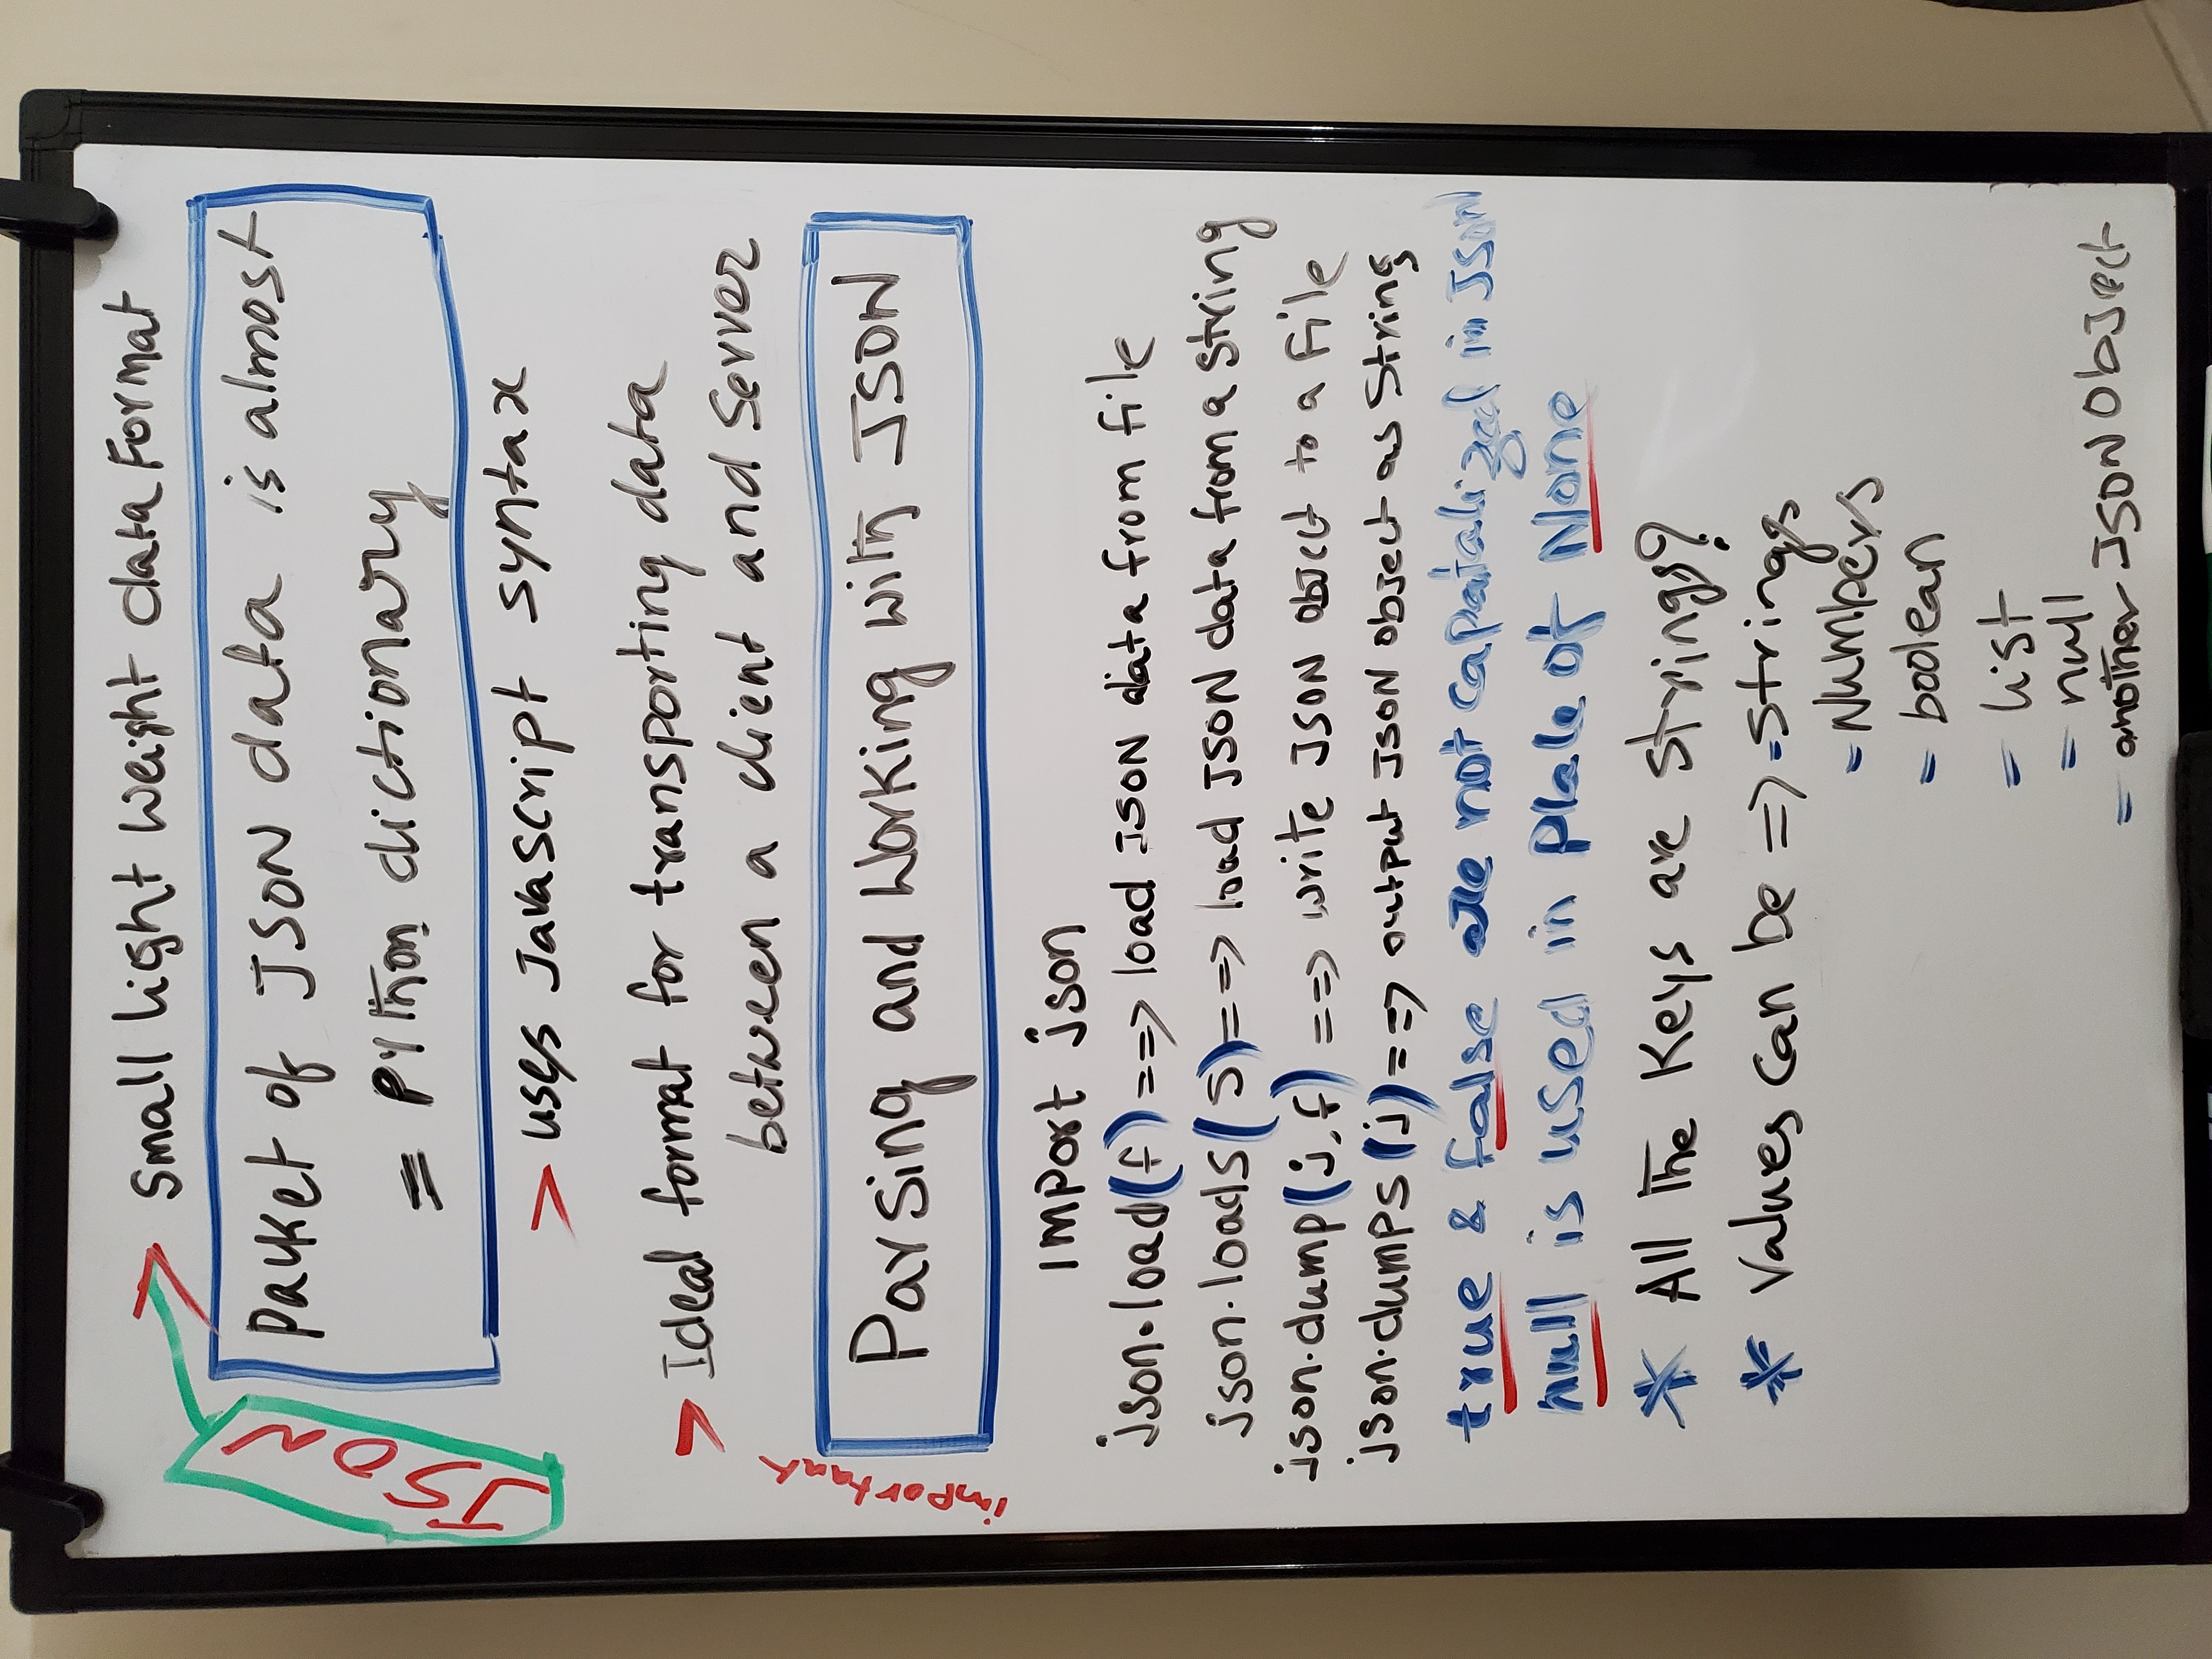 JSON
> Small light weight data Format
Packet of JSON data is almost
= Python dictionary
> uses JavaScript syntax
> Ideal format for transporting data
between a client and Server
important
Parsing and Working with JSON
import json
json.load(f) ==> load JSON data from file
json.loads(s) ==> load JSON data from a string
json.dump(j,f) ==> write JSON object to a file
json.dumps(j) ==> output JSON object as String
true & false are not capatalized in JSON
null is used in Place of None
* All The Keys are strings?
* Values can be => - Strings
- Numbers
- boolean
- list
- null
- another JSON Object